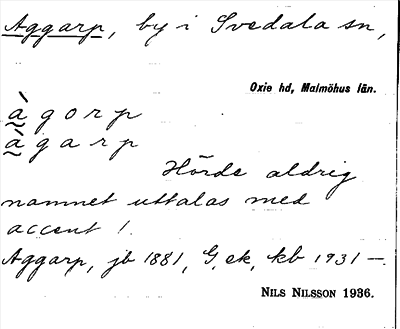 Aggarp, by i Svedala sn,
Oxie hd, Malmöhus län.
à̰ g o r p
á̰ g a r p
Hörde aldrig
namnet uttalas med
accent 1.
Aggarp, jb 1881, G, ek, kb 1931 —.
NILS NILSSON 1936.